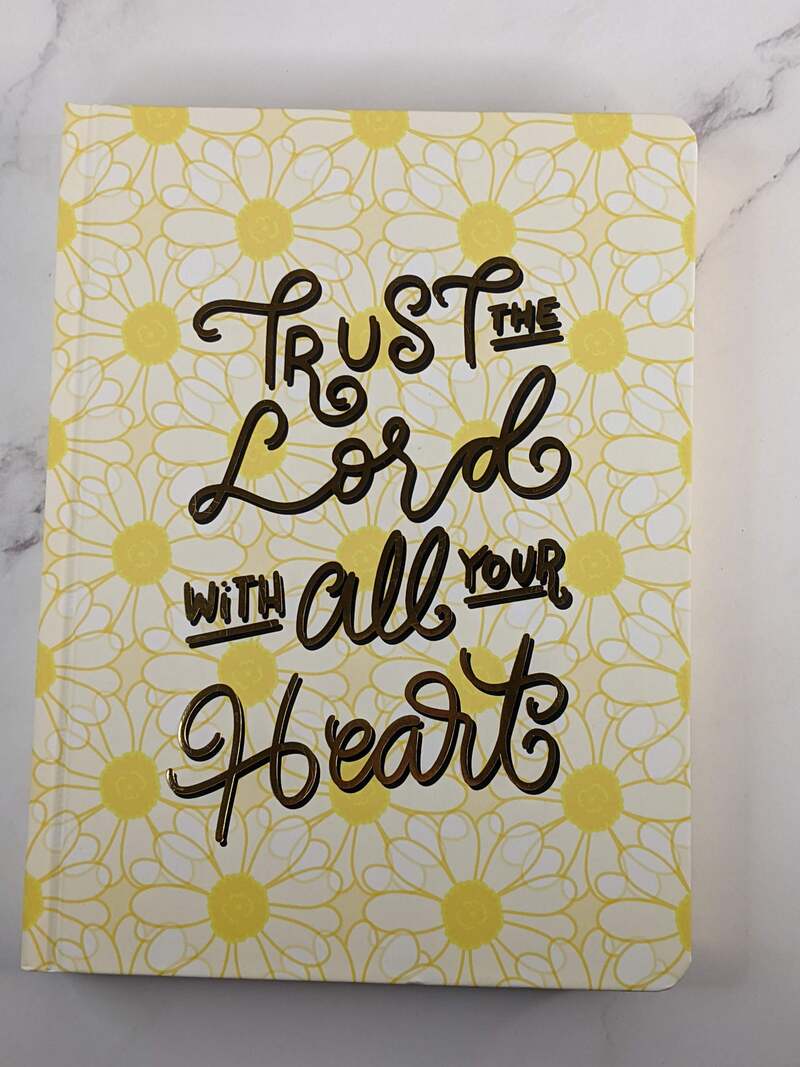 TRUST THE
Lord
WiTH all YOUR
Heart